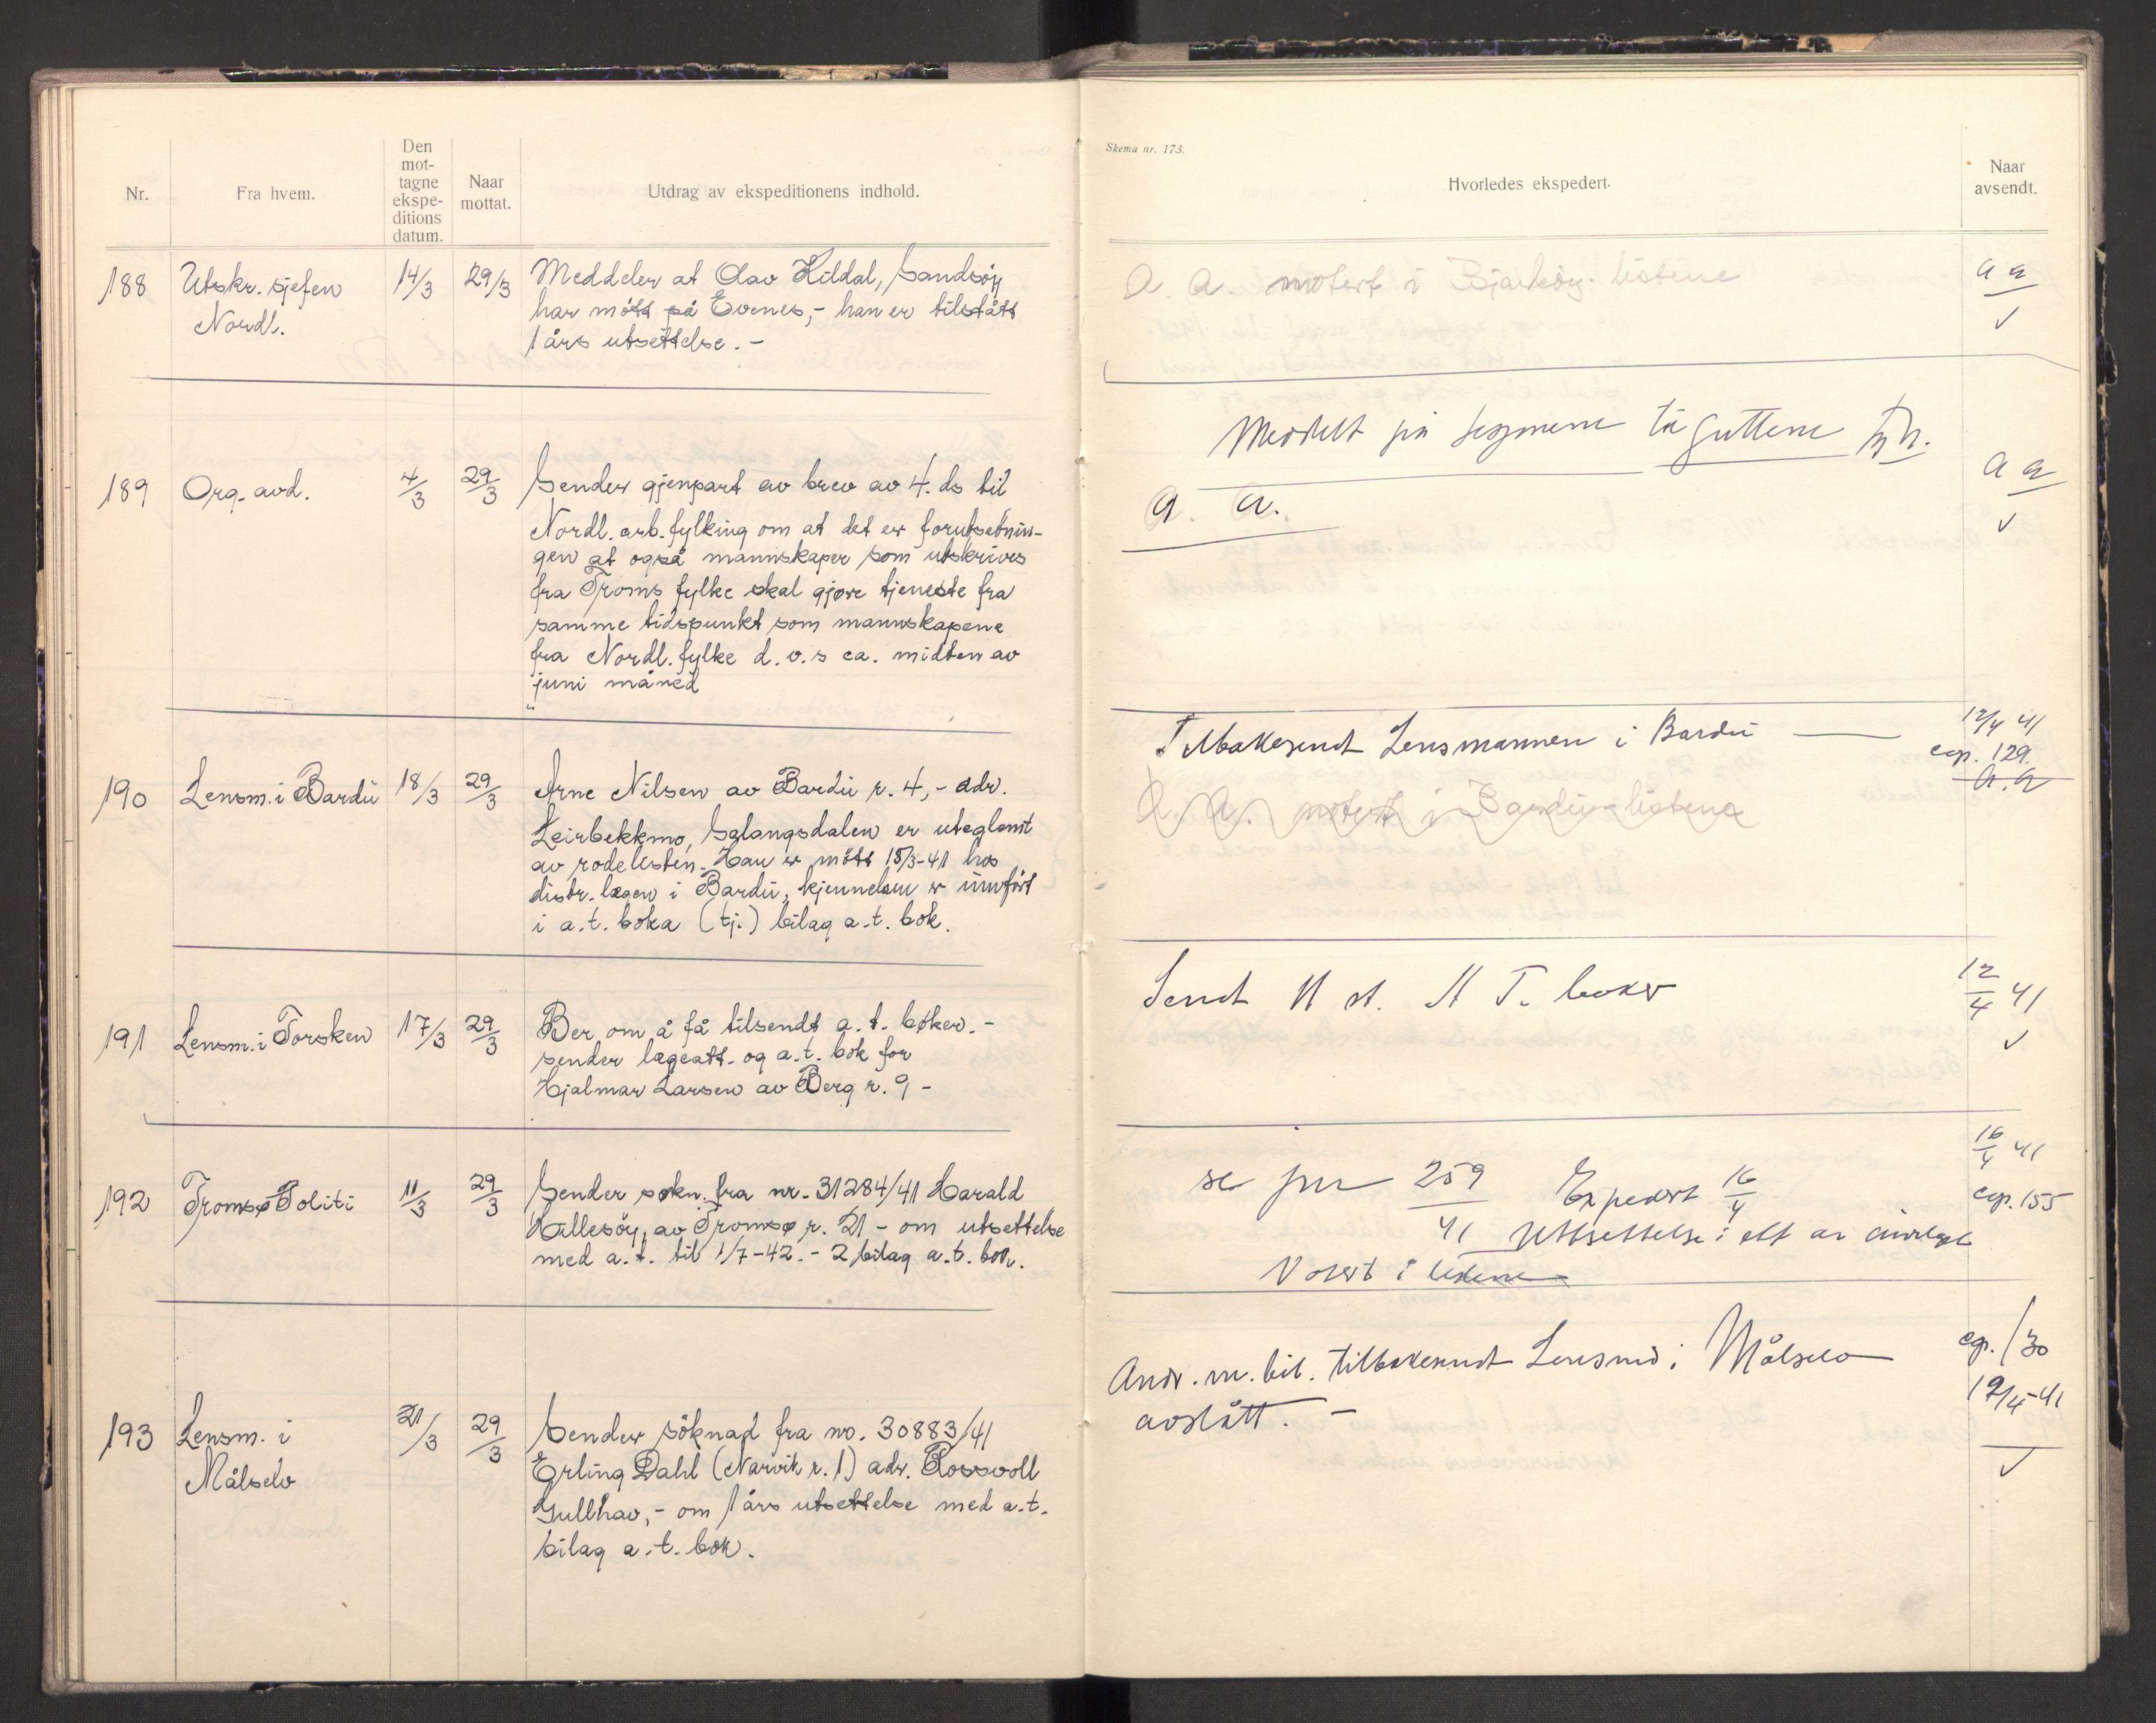 Nr.
Fra hvem.
Den
mot-
tagne
ekspe-
ditions
datum.
Naar
mottat.
Utdrag av ekspeditionens indhold.
188
Utskr. sjefen
Nordl.
14/3
29/3
Meddeler at Olav Kildal, Sandsöy
har mött på Evenes,- han er tilstått
1 års utsettelse. -
189
Org. avd.
4/3
29/3
Sender gjenpart av brev av 4. ds til
Nordl. arb. fylking om at det er forutsetnin-
gen at også mannskaper som utskrives
fra Troms fylke skal gjøre tjeneste fra
samme tidspunkt som mannskapene
fra Nordl. fylke d.v.s ca. midten av
juni måned
190
Lensm. i Bardu
18/3
29/3
Arne Nilsen av Bardu r. 4,- adr.
Leirbekkmo, Salangsdalen er uteglemt
av rodelisten. Han er mött 15/3-41 hos
distr. lægen i Bardu, kjennelsen er innfört
i a.t. boka (tj.) bilag a.t. bok.
191
Lensm. i Torsken
17/3
29/3
Ber om å få tilsendt a.t. bøker. -
sender lægeatt. og a.t. bok for
Hjalmar Larsen av Berg r. 9 -
192
Tromsø Politi
11/3
29/3
Sender søkn. fra nr. 31284/41 Harald
Hallesöy, av Tromsø r. 21 - om utsettelse
med a.t. til 1/7-42. - 2 bilag a.t. bok.
193
Lensm. i
Målselv
21/3
29/3
Sender söknad fra no. 30883/41
Erling Dahl (Narvik r. 1) adr. Rossvoll
Gullhav,- om 1 års utsettelse med a.t.
bilag a.t. bok.
Skema nr. 173.
Hvorledes ekspedert.
Naar
avsendt.
a. a. notert i Bjarköy-listene
a a
✓
Meddelt på
guttene
a. a.
a a
✓
Tilbakesendt Lensmannen i Bardu
12/4 41
cop. 129.
a.a
a. a. notert i Bardu-listene
Sendt 11 st. A T. boker
12/4 41
✓
se jnr 259/41 Expedert 16/4
16/4 41
cop. 155
Utsettelse i ett år innvilget
Notert i listene
Andr. m. bil. tilbakesendt Lensmd i Målselv
avslått. -
cop. 130
12/4-41
✓